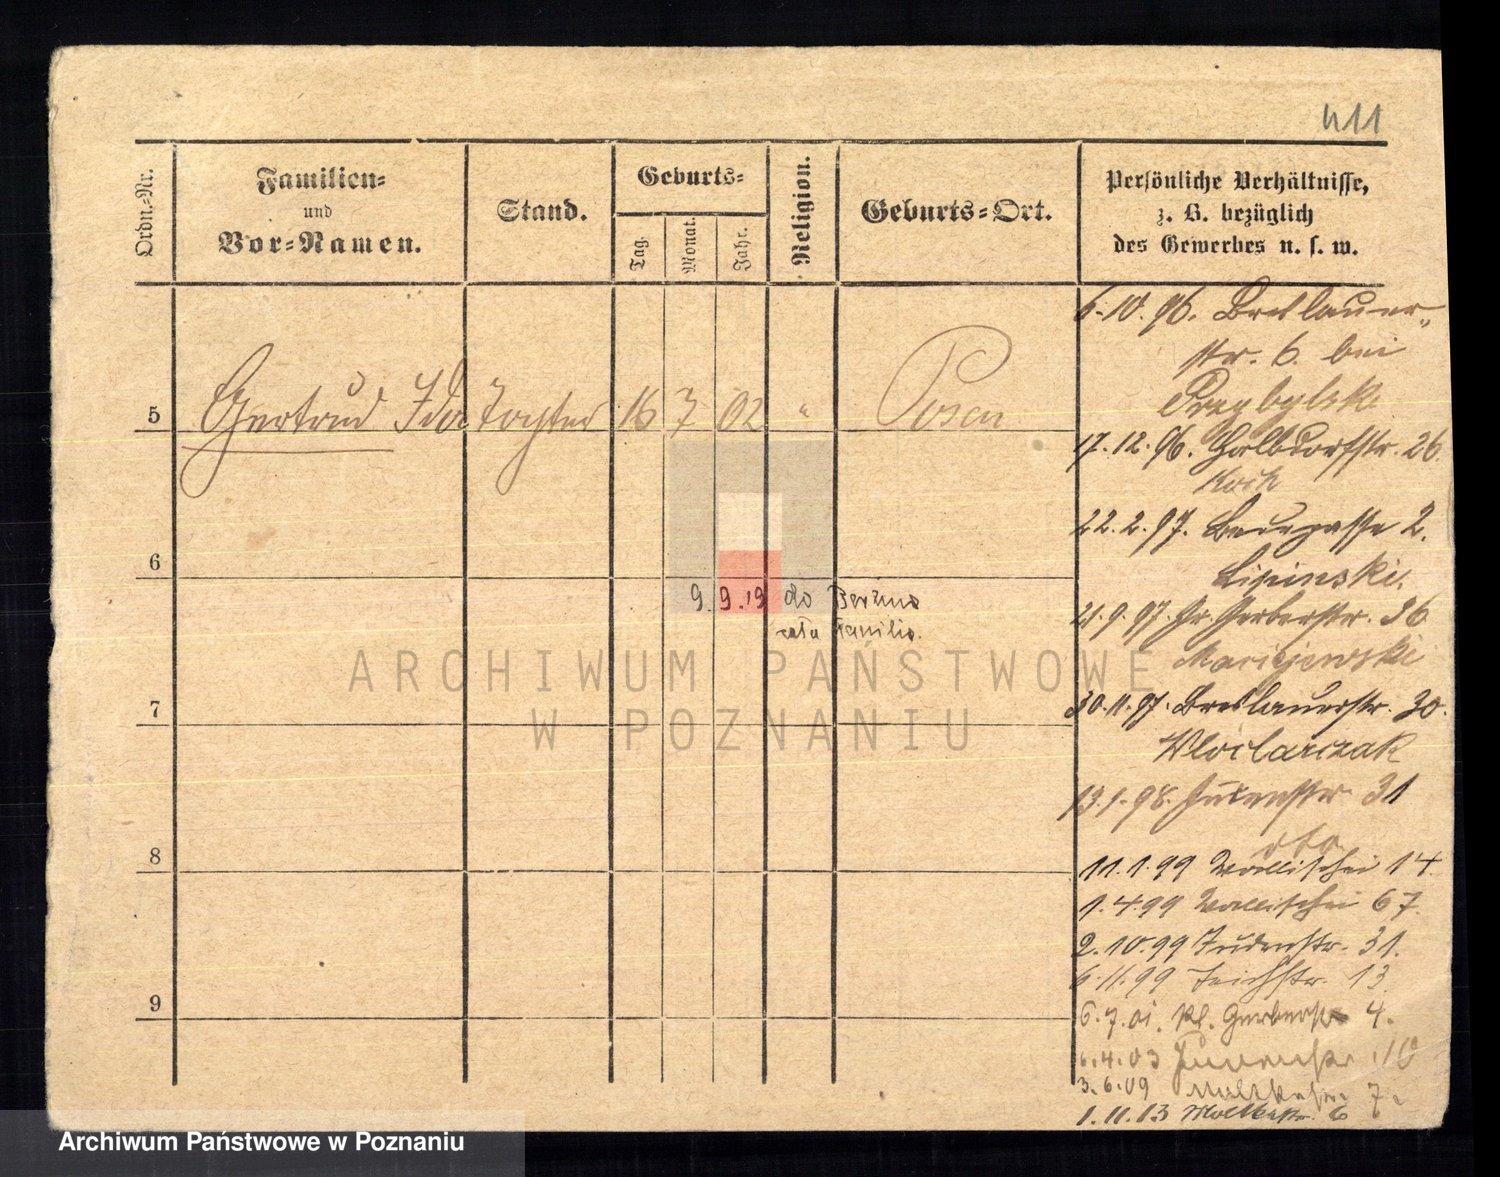 411
Ordn.-Nr.
Familien-
und
Vor-Namen.
Stand.
Geburts-
Tag.
Monat.
Jahr.
Religion.
Geburts-Ort.
Persönliche Verhältnisse,
z. B. bezüglich
des Gewerbes u. s. w.
6.10.96. Breslauer-
str. 6. bei
Przybylski
5 Gertrud Ida Tochter 16 7 02 " Posen
17.12.96. Halbdorfstr. 26.
Koch
22.2.97. 2.
Lipinski.
6
9.9.19 do Berlina
cała familia.
21.9.97. Gr. Gerberstr. 36
Maciejewski
7
30.11.97. Breslauerstr. 30.
Wloclarczak
13.1.98. Judenstr. 31
8
11.1.99 Wallischei 14
1.4.99 Wallischei 67.
2.10.99 Judenstr. 31.
6.11.99 Teichstr. 13
9
6.7.01. Kl. Gerberstr 4.
6.4.03
3.6.09 7
1.11.13 Moltkestr. 6
ARCHIWUM PAŃSTWOWE
W POZNANIU
Archiwum Państwowe w Poznaniu